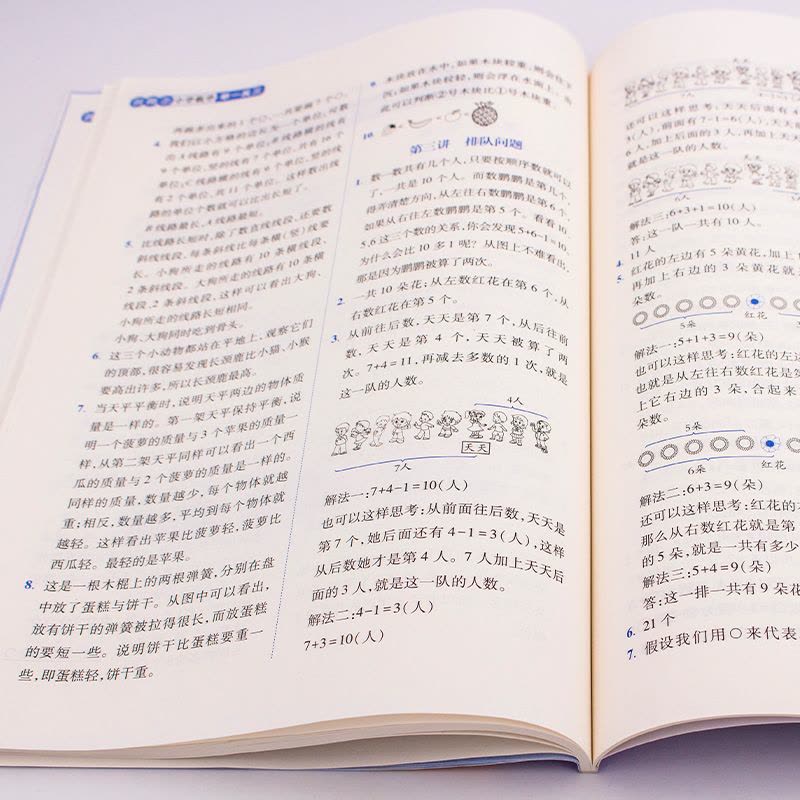 小学数学 举一反三
两端多出来的1个○,一共要画7个○。
4. 我们以小方格的边长为一个单位,可数
出A线路有9个单位,B线路横的线有
9个单位,竖的线有7个单位,共有16个
单位,C线路横的线有9个单位,竖的线
有2个单位,共11个单位。这样数出线
路的单位个数就可以比出长短了。
B线路最长,A线路最短。
5. 比线路长短时,除了数直线线段,还要数
斜线线段,每条斜线比每条横(竖)线要
长。小狗所走的线路有10条横线段、
2条斜线段。大狗所走的线路有10条横
线段、2条斜线段,这样可以看出大狗、
小狗所走的线路长短相同。
小狗、大狗同时吃到骨头。
6. 这三个小动物都站在平地上,观察它们
的顶部,很容易发现长颈鹿比小猫、小猴
要高出许多,所以长颈鹿最高。
7. 当天平平衡时,说明天平两边的物体质
量是一样的。第一架天平保持平衡,说
明一个菠萝的质量与3个苹果的质量一
样,从第二架天平同样可以看出一个西
瓜的质量与2个菠萝的质量是一样的。
同样的质量,数量越少,每个物体就越
重;相反,数量越多,平均到每个物体就
越轻。这样看出苹果比菠萝轻,菠萝比
西瓜轻。最轻的是苹果。
8. 这是一根木棍上的两根弹簧,分别在盘
中放了蛋糕与饼干。从图中可以看出,
放有饼干的弹簧被拉得很长,而放蛋糕
的要短一些。说明饼干比蛋糕要重一
些,即蛋糕轻,饼干重。
9. 木块放在水中,如果木块较重,则会往下
沉;如果木块较轻,则会浮在水面上,由
此可以判断②号木块比①号木块重。
10.
第三讲 排队问题
1. 数一数共有几个人,只要按顺序数就可以
了,一共是10个人。而数鹏鹏是第几个,
得弄清楚方向,从左往右数鹏鹏是第6个,
如果从右往左数鹏鹏是第5个。看看10、
5、6这三个数的关系,你会发现5+6-1=10,
为什么会比10多1呢?从图上不难看出,
那是因为鹏鹏被算了两次。
2. 一共10朵花;从左数红花在第6个,从
右数红花在第5个。
3. 从前往后数,天天是第7个,从后往前
数,天天是第4个,天天被算了两
次。7+4=11,再减去多数的1次,就是
这一队的人数。
4人
天天
7人
解法一:7+4-1=10(人)
也可以这样思考:从前面往后数,天天是
第7个,她后面还有4-1=3(人),这样
从后数她才是第4人。7人加上天天后
面的3人,就是这一队的人数。
解法二:4-1=3(人)
7+3=10(人)
天天
还可以这样思考:天天后面有4
(人),前面有7-1=6(人),天
6人,加上后面的3人,再加上天天
就是这一队的人数。
天天
6人
解法三:6+3+1=10(人)
答:这一队一共有10人。
4. 11人
5. 红花的左边有5朵黄花,加上
再加上右边的3朵黄花就
朵数。
5朵
红花
解法一:5+1+3=9(朵)
也可以这样思考:红花的左边
也就是从左往右数红花是第
上它右边的3朵,合起来
朵数。
5朵
6朵
红花
解法二:6+3=9(朵)
还可以这样思考:红花的
那么从右数红花就是第
的5朵,就是一共有多少
解法三:5+4=9(朵)
答:这一排一共有9朵花
6. 21个
7. 假设我们用○来代表